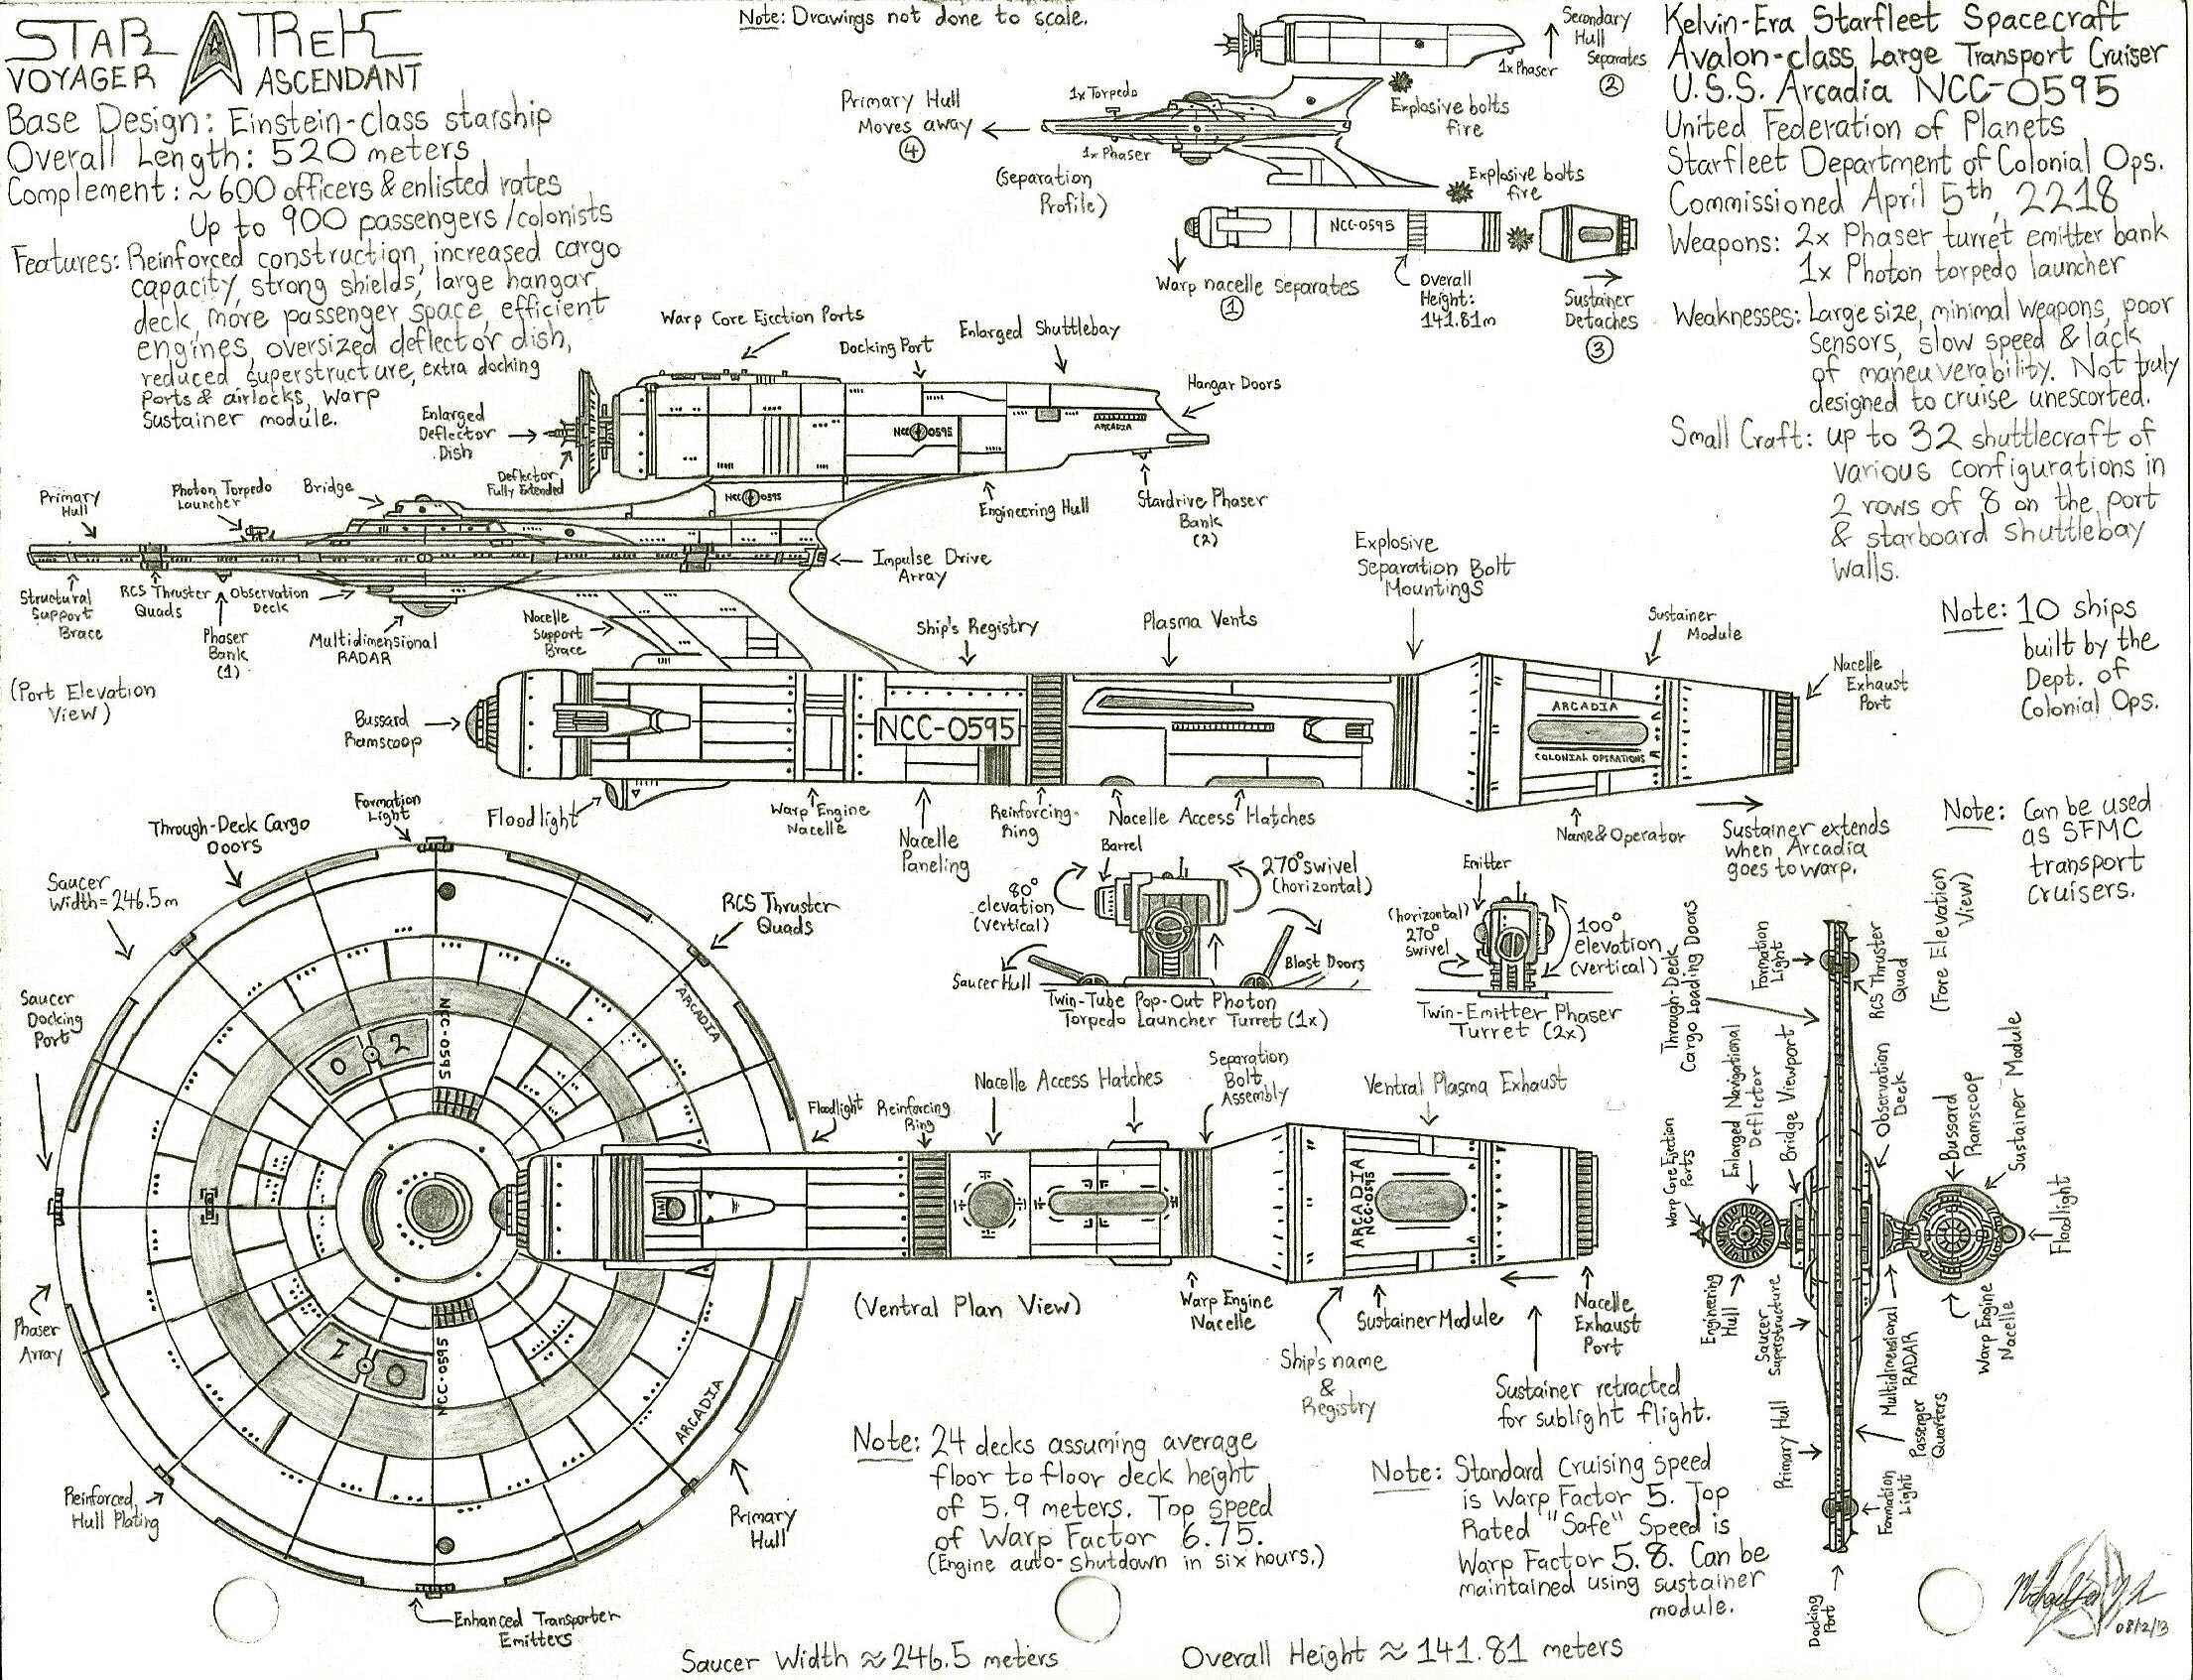 STAR TREK
VOYAGER ASCENDANT
Base Design: Einstein-class starship
Overall Length: 520 meters
Complement: ≈ 600 officers & enlisted rates
Up to 900 passengers/colonists
Features: Reinforced construction, increased cargo
capacity, strong shields, large hangar
deck, more passenger space, efficient
engines, oversized deflector dish,
reduced superstructure, extra docking
ports & airlocks, warp
sustainer module.
Note: Drawings not done to scale.
Secondary
Hull
Separates
2
1x Phaser
1x Torpedo
Primary Hull
Moves away
4
1x Phaser
(Separation
Profile)
Explosive bolts
fire
Explosive bolts
fire
NCC-0595
Warp nacelle separates
1
Overall
Height:
141.81m
Sustainer
Detaches
3
Kelvin-Era Starfleet Spacecraft
Avalon-class Large Transport Cruiser
U.S.S. Arcadia NCC-0595
United Federation of Planets
Starfleet Department of Colonial Ops.
Commissioned April 5th, 2218
Weapons: 2x Phaser turret emitter bank
1x Photon torpedo launcher
Weaknesses: Large size, minimal weapons, poor
sensors, slow speed & lack
of maneuverability. Not truly
designed to cruise unescorted.
Small Craft: up to 32 shuttlecraft of
various configurations in
2 rows of 8 on the port
& starboard shuttlebay
walls.
Note: 10 ships
built by the
Dept. of
Colonial Ops.
Note: Can be used
as SFMC
transport
cruisers.
Warp Core Ejection Ports
Docking Port
Enlarged Shuttlebay
Hangar Doors
Enlarged
Deflector
Dish
Deflector
Fully Extended
NCC 0595
ARCADIA
NCC 0595
Engineering Hull
Stardrive Phaser
Bank
(2)
Primary
Hull
Photon Torpedo
Launcher
Bridge
Impulse Drive
Array
Structural
Support
Brace
RCS Thruster
Quads
Observation
Deck
Phaser
Bank
(1)
Multidimensional
RADAR
Nacelle
Support
Brace
(Port Elevation
View)
Ship's Registry
Plasma Vents
Explosive
Separation Bolt
Mountings
Sustainer
Module
Nacelle
Exhaust
Port
Bussard
Ramscoop
NCC-0595
ARCADIA
COLONIAL OPERATIONS
Floodlight
Warp Engine
Nacelle
Nacelle
Paneling
Reinforcing
Ring
Nacelle Access Hatches
Name & Operator
Sustainer extends
when Arcadia
goes to warp.
Through-Deck Cargo
Doors
Formation
Light
Saucer
Width = 246.5m
RCS Thruster
Quads
Saucer
Docking
Port
ARCADIA
NCC-0595
0 2
1 0
NCC-0595
ARCADIA
Phaser
Array
Reinforced
Hull Plating
Primary
Hull
Enhanced Transporter
Emitters
Barrel
80°
elevation
(vertical)
270° swivel
(horizontal)
Saucer Hull
Blast Doors
Twin-Tube Pop-Out Photon
Torpedo Launcher Turret (1x)
Emitter
(horizontal)
270°
swivel
100°
elevation
(vertical)
Twin-Emitter Phaser
Turret (2x)
Floodlight
Reinforcing
Ring
Nacelle Access Hatches
Separation
Bolt
Assembly
Ventral Plasma Exhaust
ARCADIA
NCC-0595
(Ventral Plan View)
Warp Engine
Nacelle
Ship's name
&
Registry
Sustainer Module
Nacelle
Exhaust
Port
Sustainer retracted
for sublight flight.
Note: 24 decks assuming average
floor to floor deck height
of 5.9 meters. Top speed
of Warp Factor 6.75.
(Engine auto-shutdown in six hours.)
Note: Standard Cruising speed
is Warp Factor 5. Top
Rated "Safe" Speed is
Warp Factor 5.8. Can be
maintained using sustainer
module.
(Fore Elevation
View)
Through-Deck
Cargo Loading Doors
Formation
Light
RCS Thruster
Quad
Enlarged Navigational
Deflector
Bridge Viewport
Observation
Deck
Warp Core Ejection
Ports
Bussard
Ramscoop
Sustainer Module
Floodlight
Engineering
Hull
Saucer
Superstructure
Multidimensional
RADAR
Warp Engine
Nacelle
Primary Hull
Passenger
Quarters
Formation
Light
Docking
Port
08/12/13
Saucer Width ≈ 246.5 meters
Overall Height ≈ 141.81 meters